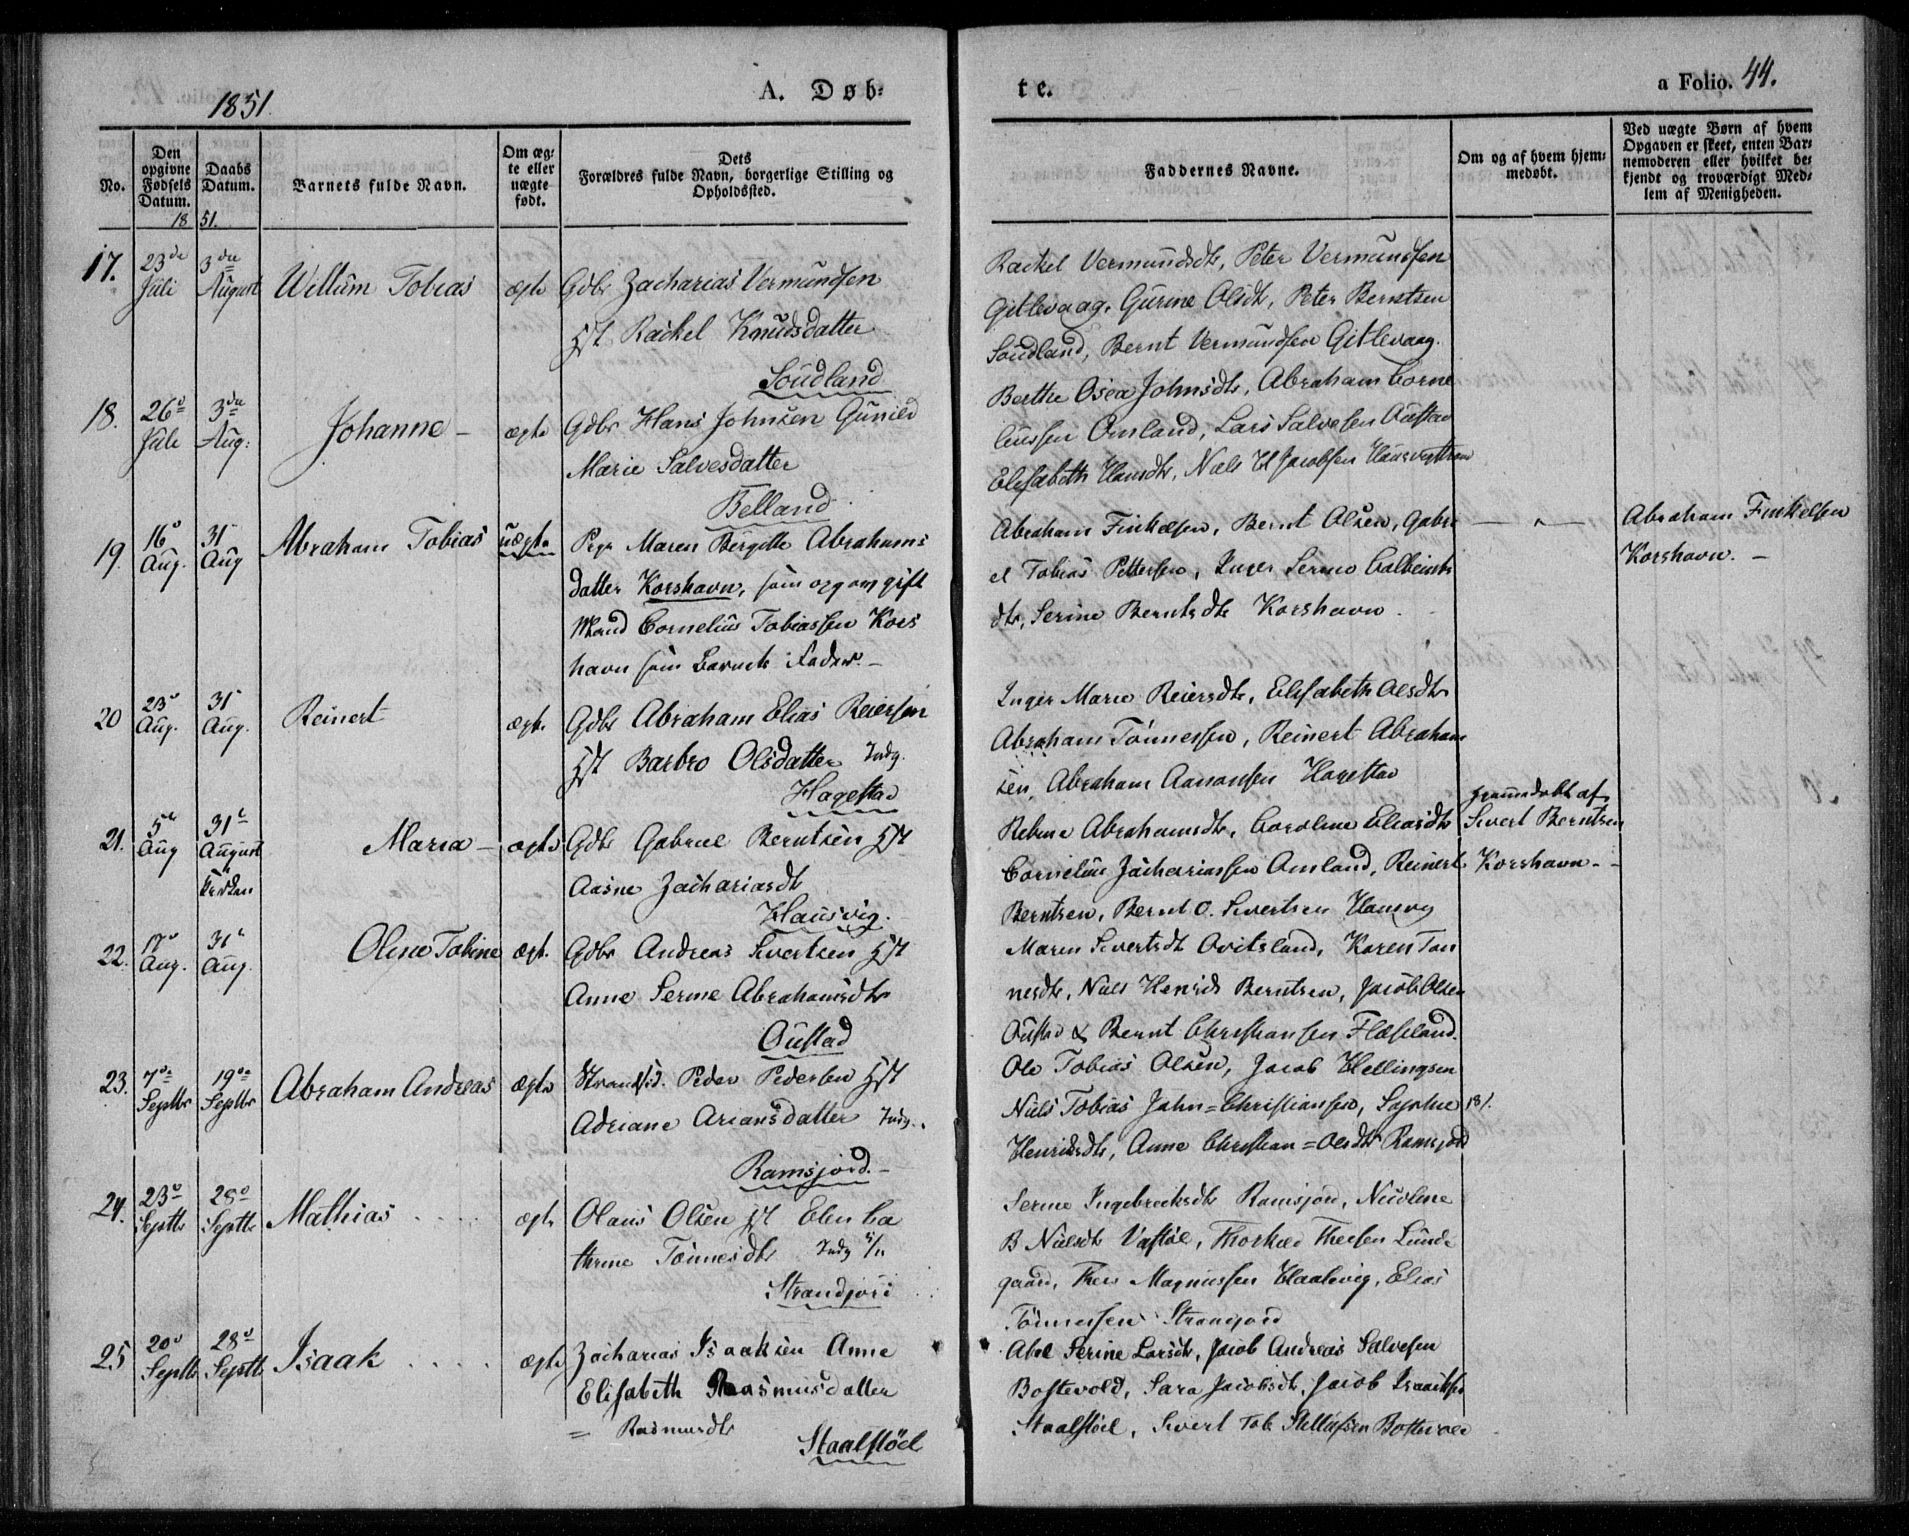 1851
A. Døb-
te.
a Folio. 44.
No.
Den opgivne Fødsels Datum.
Daabs Datum.
18 51.
Barnets fulde Navn.
Om æg-
te eller
uægte
født.
Dets
Forældres fulde Navn, borgerlige Stilling og
Opholdssted.
Faddernes Navne.
Om og af hvem hjem-
medøbt.
Ved uægte Børn af hvem
Opgaven er skeet, enten Bar-
nemoderen eller hvilket be-
kjendt og troværdigt Med-
lem af Menigheden.
17. 23de Juli 3die August Willum Tobias ægte Gdbr Zacharias Vermundsen
Hst Rackel Knudsdatter
Soudland
Rackel Vermundsdtr, Peter Vermundsen
Gitlevaag. Gurine Olsdtr, Peter Berntsen
Soudland, Bernt Vermundsen Gitlevaag.
18. 26d Juli 3die Aug: Johanne - ægte Gdbr Hans Johnsen Gunild
Marie Salvesdatter
Belland
Berthe Osea Johnsdtr, Abraham Corne
liussen Omland, Lars Salvesen Austad
Elisabeth Hansdtr, Niels H Jacobsen
19. 16d Aug. 31 Aug Abraham Tobias uægte Pige Maren Bergitte Abrahams
datter Korshavn, som opgav gift
Mand Cornelius Tobiassen Kors
havn som Barnets Fader. -
Abraham Finkelsen, Bernt Olsen, Gabri
el Tobias Pettersen, Inger Serine
dtr, Serine Berntsdtr Korshavn.
— " —
Abraham Finkelsen
Korshavn. -
20 23d Aug. 31 Aug. Reinert ægte Gdbr Abraham Elias Reiersen
Hst Barbro Olsdatter Indg.
Hagestad
Inger Marie Reiersdtr, Elisabeth Olsdtr
Abraham Tönnessen, Reinert Abraham
sen, Abraham Aanonsen Hagestad
21. 5d Aug 31d August Kirken Maria - ægte Gdbr Gabriel Berntsen Hst
Aasne Zachariasdtr
Hausvig.
Rebine Abrahamsdtr, Caroline Eliasdtr
Cornelius Zachariassen Omland, Reinert
Berntsen, Bernt O. Sivertsen Hausvig
hjemmedøbt af
Sivert Berntsen
Korshavn - -
22. 17d Aug. 31d Aug. Olene Tobine ægt. Gdbr Andreas Sivertsen Hst
Anne Serine Abrahamsdtr
Oustad
Maren Sivertsdt Ovitsland, Karen Tön
nesdtr, Niels Henrik Berntsen, Jacob Olsen
Oustad & Bernt Christiansen Flæseland.
23. 7de Septbr 19de Septbr Abraham Andreas ægte Strands. Peder Pedersen Hst
Adriane Ariansdatter Indg.
Ramsjord. -
Ole Tobias Olsen, Jacob Hellingsen
Niels Tobias John=Christiansen, Sophie
Henriksdtr, Anne Christian=Olsdtr Ramsjord
24. 23d Septbr 28d Septbr Mathias . . . . ægte Olaus Olsen Hst Elen Ca
thrine Tönnesdtr Indg
Strandjord
Serine Ingebrecktsdtr Ramsjord, Nicoline
B Nielsdtr Vastöl, Thorkel Theesen Lunde
gaard, Thes Magnussen Haalevig, Elias
Tönnessen Strandjord
25 20d Septbr 28d Septbr Isaak . . . . ægte Zacharias Isaaksen Anne
Elisabeth Rasmusdatter
= Rasmusdtr
Staalstöel
Abel Serine Larsdtr, Jacob Andreas Salvesen
Bostevold, Sara Jacobsdtr, Jacob Isaaksen
Staalstöel, Sivert Tob Bostevold